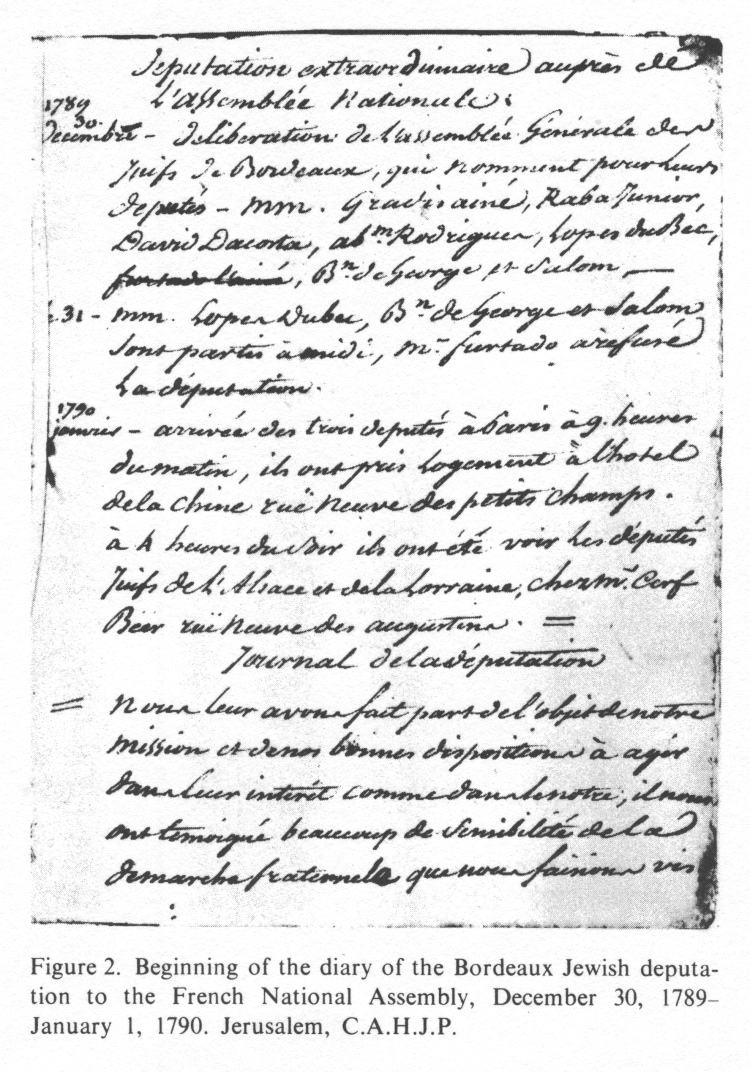 Deputation extraordinnaire auprès de
L'assemblée Nationale.
1789
30.
Decembre - deliberation de l'assemblée Générale des
Juifs de Bordeaux, qui nomment pour leurs
députés - mm. Gradis ainé, Raba Junior,
David Dacosta, ab.m Rodrigues, Lopes du Bec,
furtado l'ainé, B.n de George et Salom, —
31 - mm. Lopes Dubec, B.n de George et Salom
Sont partis à midi, m.r furtado a refusé
La députation.
1790
janvier - arrivée des trois députés à Paris à 9. heures
du matin, ils ont pris Logement à l'hotel
de la Chine ruë Neuve des petits champs.
à 4 heures du Soir ils ont été voir Les députés
Juifs de L'Alsace et de la Lorraine, chez m.r Cerf
Beer ruë Neuve des augustins. =
Journal de la députation
= Nous leur avons fait part de l'objet de notre
Mission et de nos bonnes dispositions à agir
dans Leur intérêt comme dans le notre, il nous
ont temoigné beaucoup de Sensibilité de la
demarche fraternele que nous faisions vis
Figure 2. Beginning of the diary of the Bordeaux Jewish deputa-
tion to the French National Assembly, December 30, 1789–
January 1, 1790. Jerusalem, C.A.H.J.P.